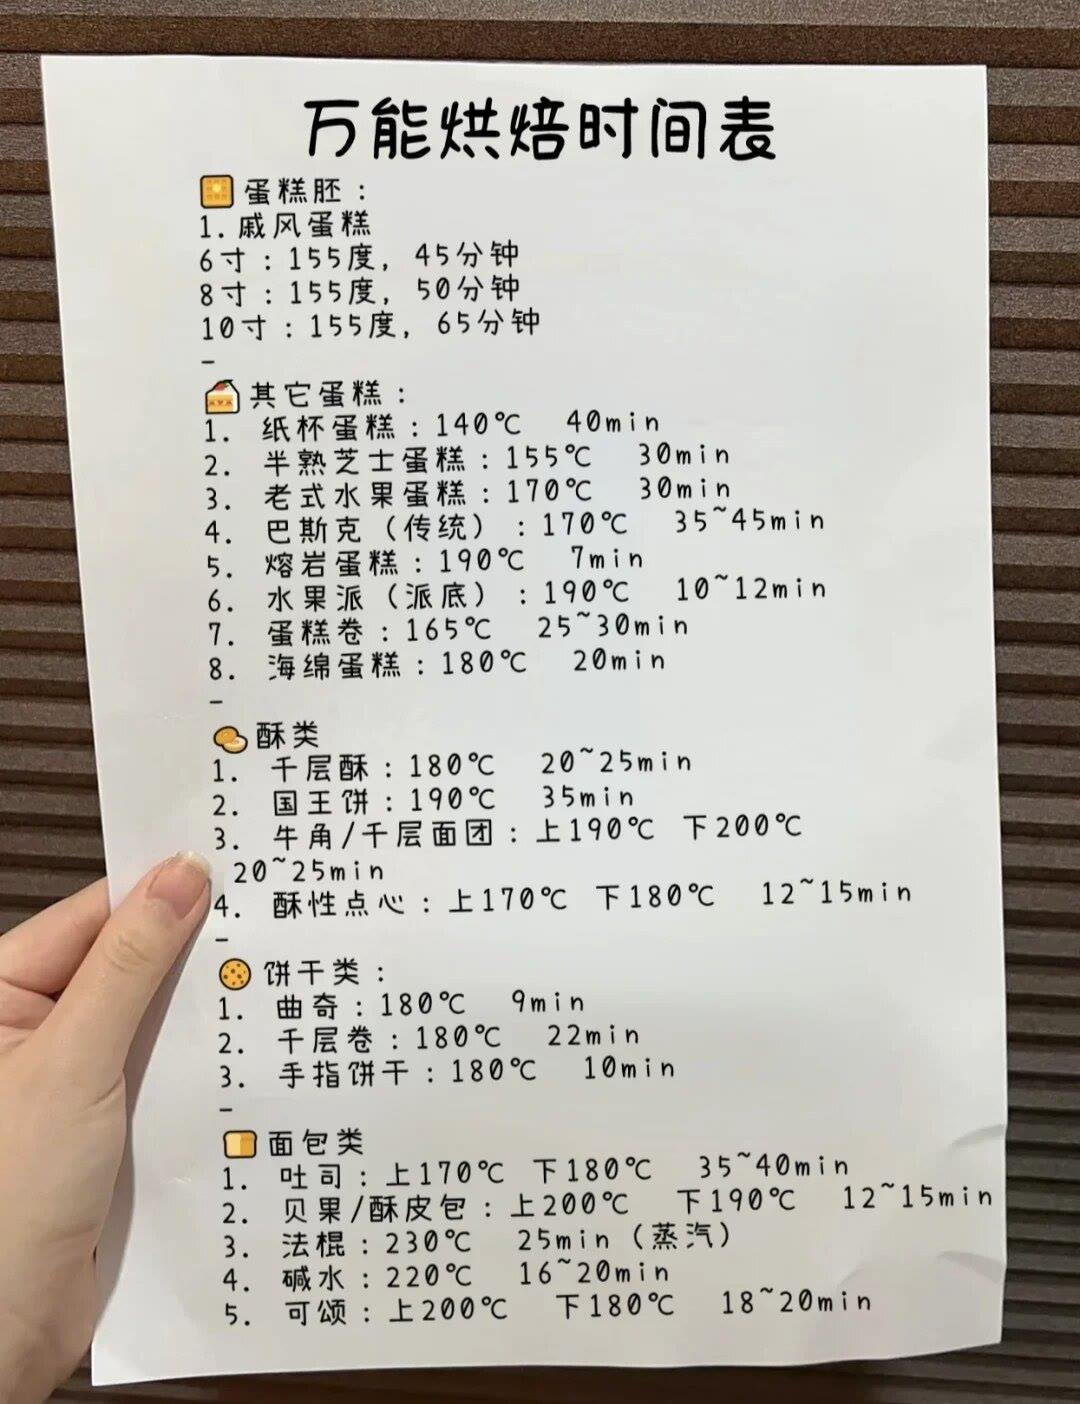 万能烘焙时间表
蛋糕胚：
1.戚风蛋糕
6寸：155度，45分钟
8寸：155度，50分钟
10寸：155度，65分钟
-
其它蛋糕：
1. 纸杯蛋糕：140℃ 40min
2. 半熟芝士蛋糕：155℃ 30min
3. 老式水果蛋糕：170℃ 30min
4. 巴斯克（传统）：170℃ 35~45min
5. 熔岩蛋糕：190℃ 7min
6. 水果派（派底）：190℃ 10~12min
7. 蛋糕卷：165℃ 25~30min
8. 海绵蛋糕：180℃ 20min
-
酥类
1. 千层酥：180℃ 20~25min
2. 国王饼：190℃ 35min
3. 牛角/千层面团：上190℃ 下200℃
20~25min
4. 酥性点心：上170℃ 下180℃ 12~15min
-
饼干类：
1. 曲奇：180℃ 9min
2. 千层卷：180℃ 22min
3. 手指饼干：180℃ 10min
-
面包类
1. 吐司：上170℃ 下180℃ 35~40min
2. 贝果/酥皮包：上200℃ 下190℃ 12~15min
3. 法棍：230℃ 25min（蒸汽）
4. 碱水：220℃ 16~20min
5. 可颂：上200℃ 下180℃ 18~20min